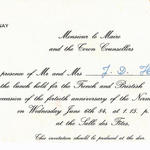 NAY
Monsieur le Maire
and the Town Counsellors
presence of Mr and Mrs J. D. H
the lunch held for the French and British
occasion of the fortieth anniversary of the Norm
on Wednesday June 6th 84, at 1.15 p.
at the Salle des Fêtes.
This invitation should be produced at the door.